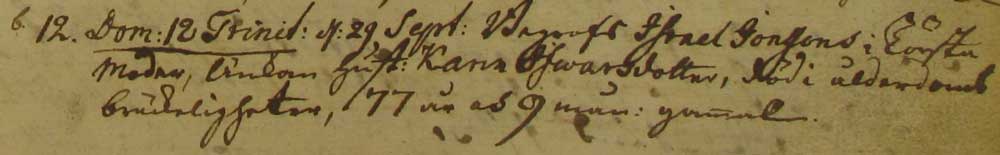 6. 12. Dom: 12 Trinit: d: 29 Sept: Begrofs Israel Jonssons i Körsta
Moder, Enkan hust: Karin Ifwarsdotter, död i ålderdoms
bräckeligheter, 77 år och 9 mån: gammal.